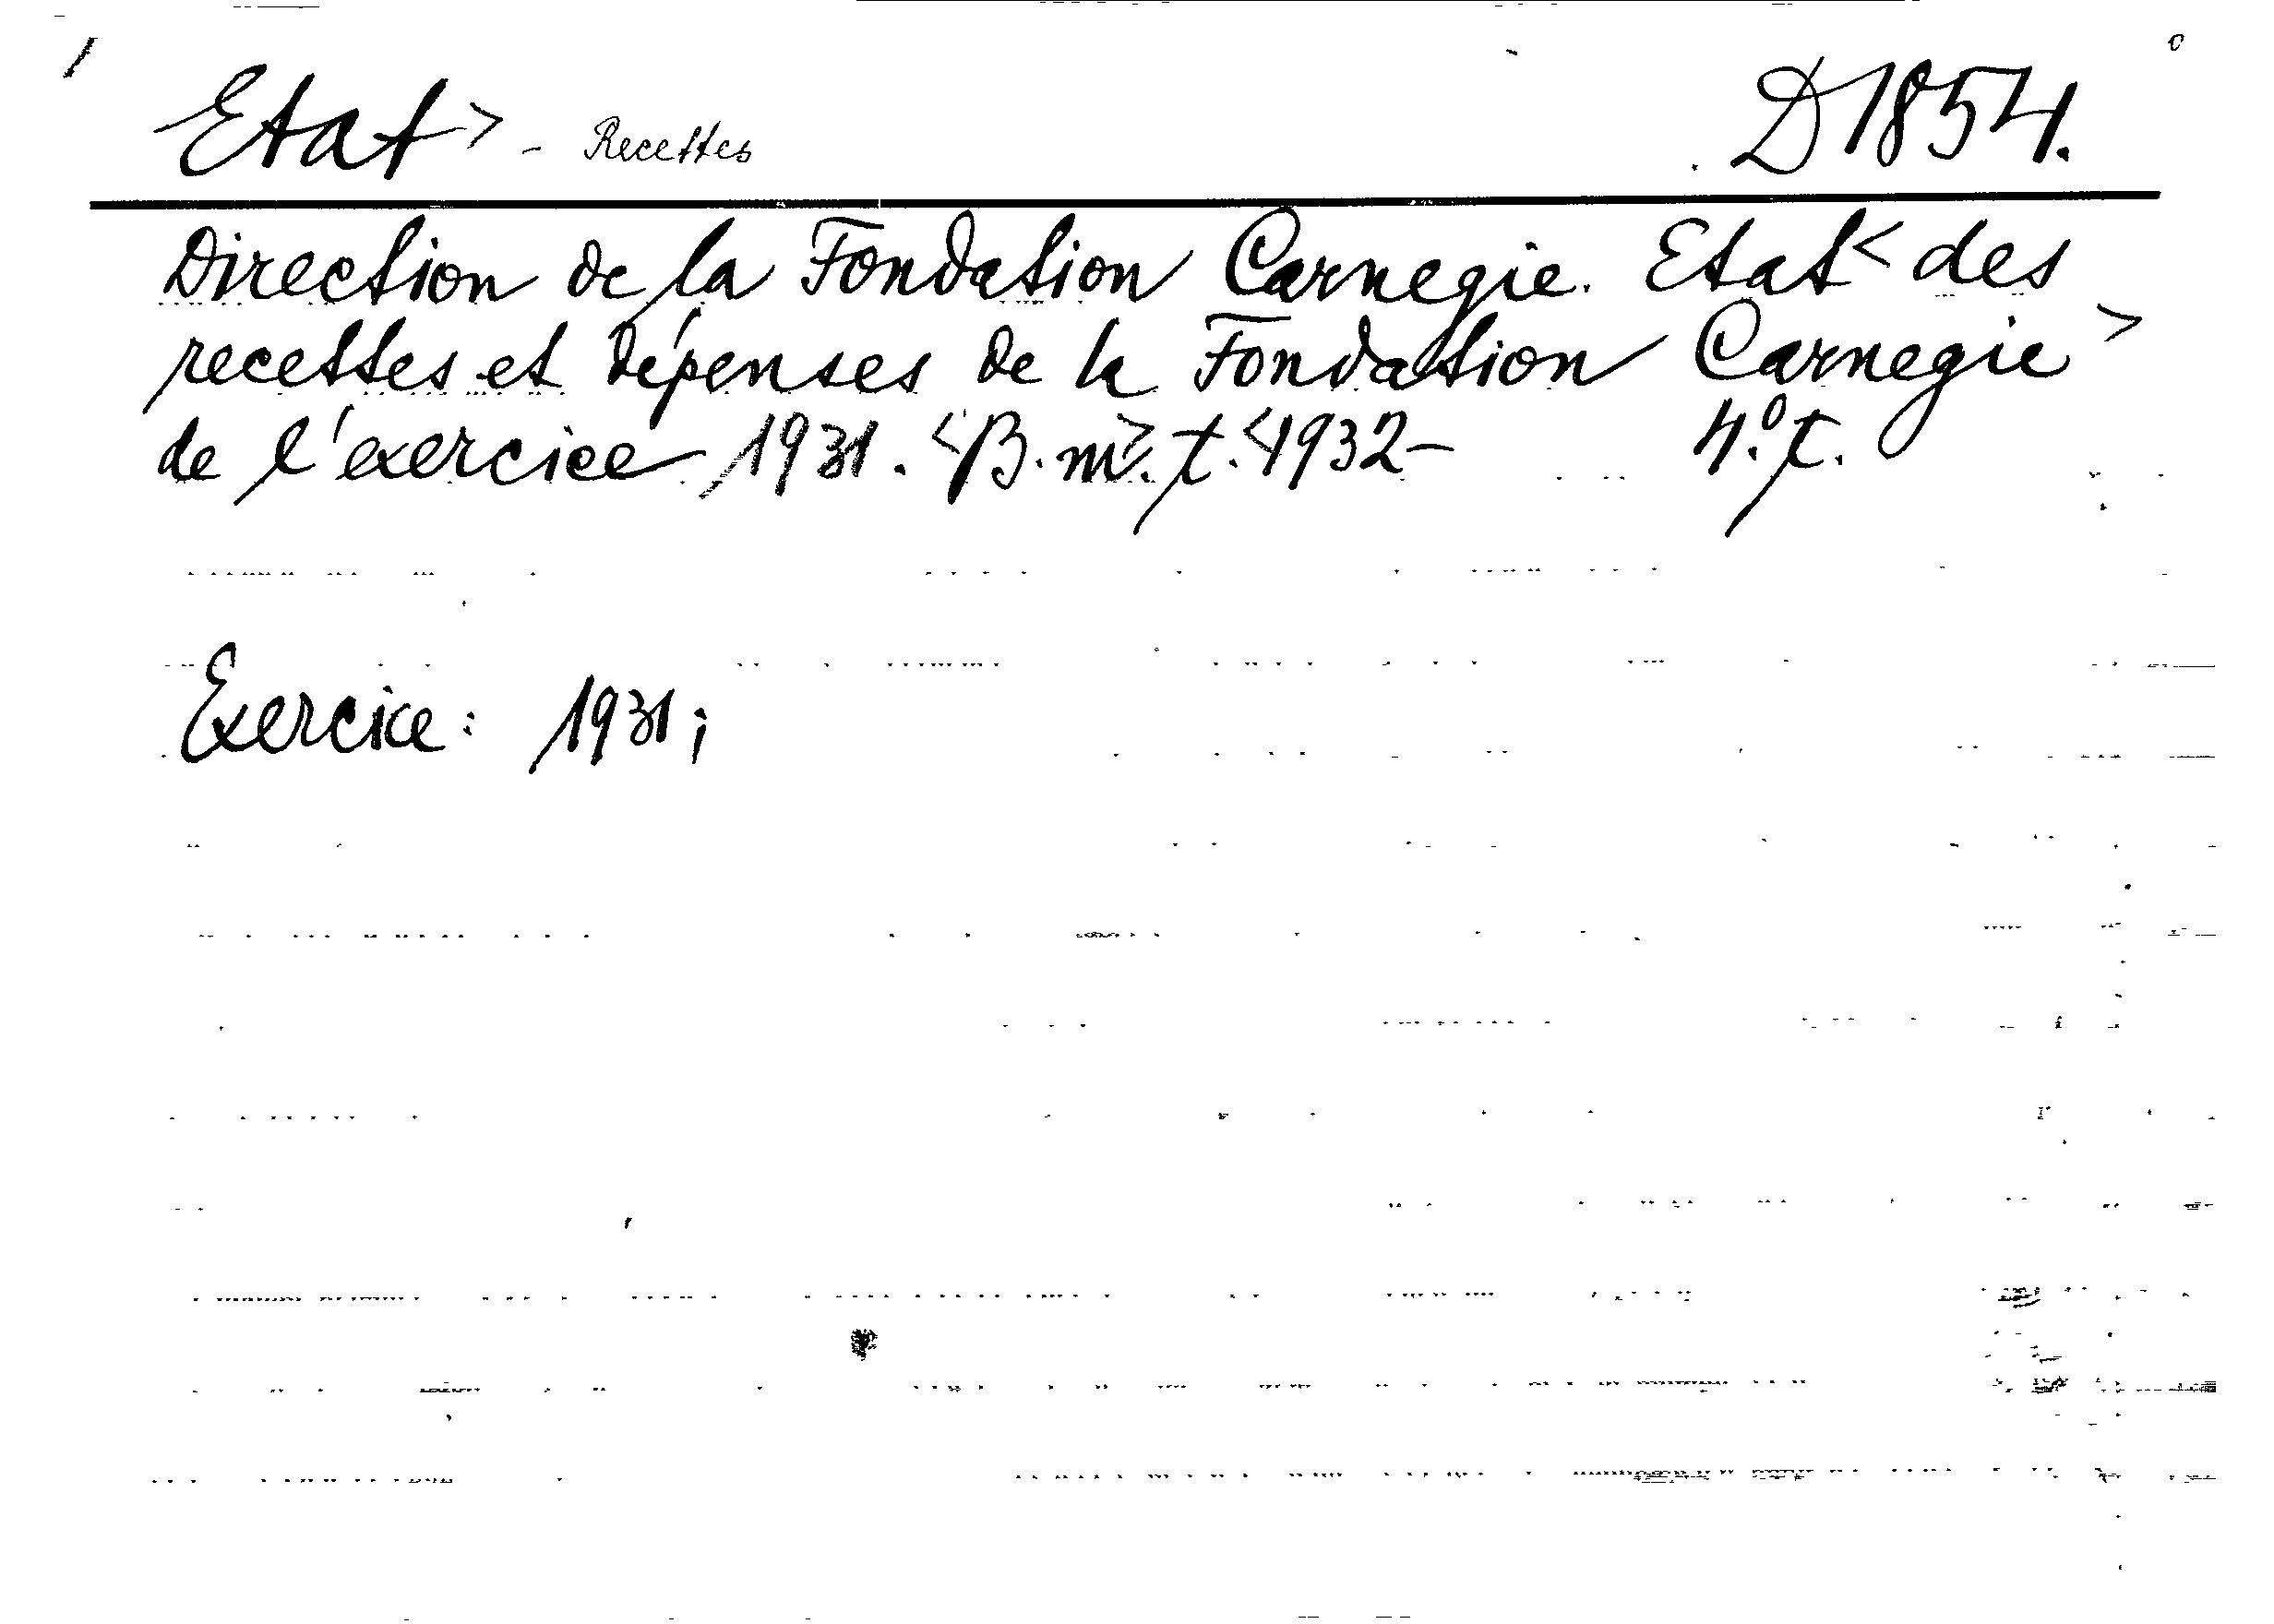 Etat> - Recettes D 1854.
Direction de la Fondation Carnegie. Etat< des
recettes et dépenses de la Fondation Carnegie>
de l'exercice 1931. <B. m>. t. <1932- 4.º t.
Exercice: 1931;